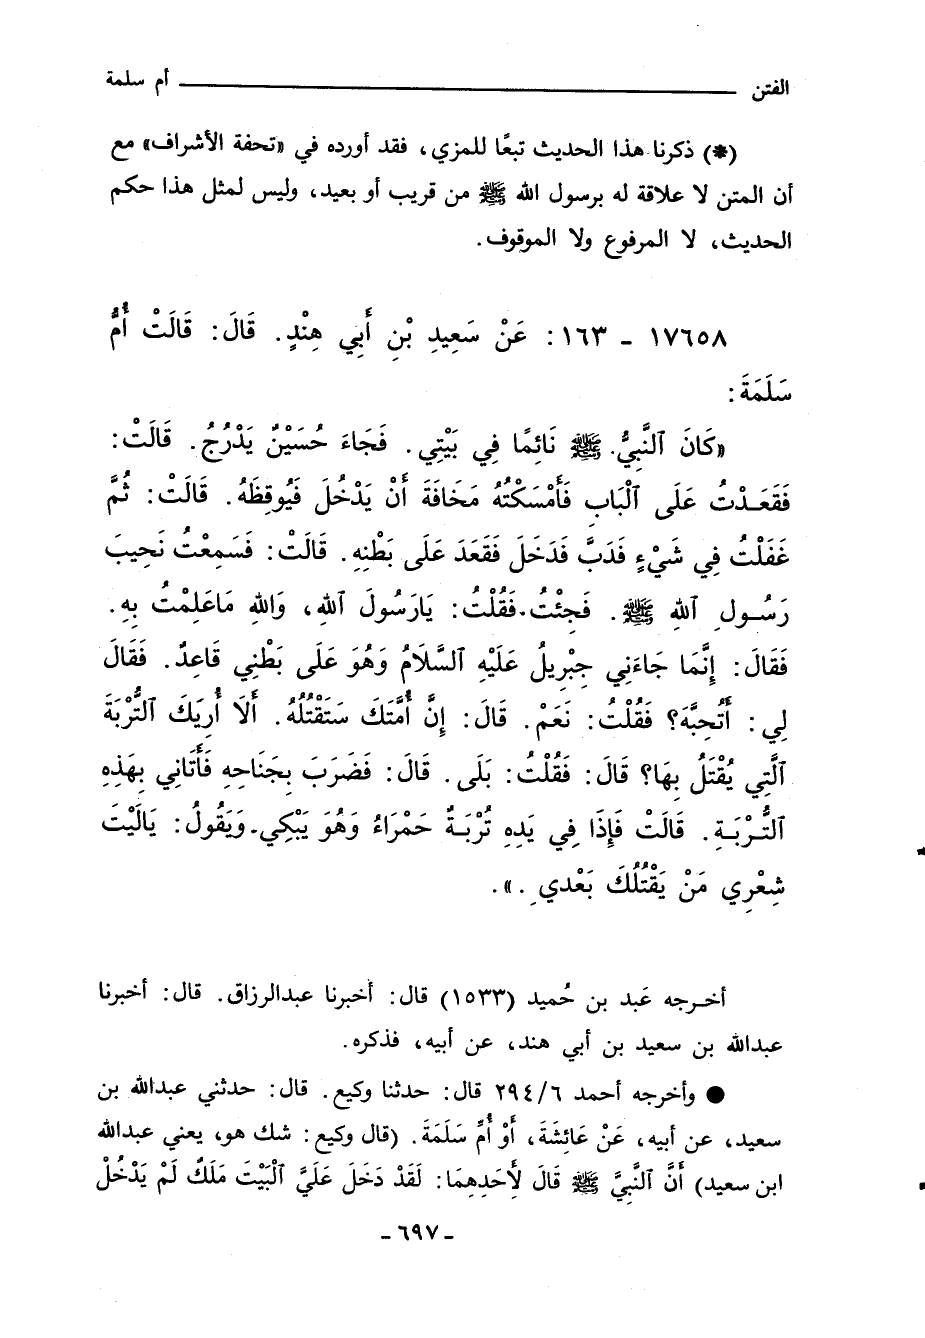 الفتن ـــــــــــ أم سلمة
(*) ذكرنا هذا الحديث تبعًا للمزي، فقد أورده في «تحفة الأشراف» مع
أن المتن لا علاقة له برسول الله ﷺ من قريب أو بعيد، وليس لمثل هذا حكم
الحديث، لا المرفوع ولا الموقوف.
١٧٦٥٨ ـ ١٦٣: عَنْ سَعِيدِ بْنِ أَبِي هِنْدٍ. قَالَ: قَالَتْ أُمُّ
سَلَمَةَ:
«كَانَ ٱلنَّبِيُّ ﷺ نَائِمًا فِي بَيْتِي. فَجَاءَ حُسَيْنٌ يَدْرُجُ. قَالَتْ:
فَقَعَدْتُ عَلَى ٱلْبَابِ فَأَمْسَكْتُهُ مَخَافَةَ أَنْ يَدْخُلَ فَيُوقِظَهُ. قَالَتْ: ثُمَّ
غَفَلْتُ فِي شَيْءٍ فَدَبَّ فَدَخَلَ فَقَعَدَ عَلَى بَطْنِهِ. قَالَتْ: فَسَمِعْتُ نَحِيبَ
رَسُولِ ٱللهِ ﷺ. فَجِئْتُ. فَقُلْتُ: يَارَسُولَ ٱللهِ، وَاللهِ مَاعَلِمْتُ بِهِ.
فَقَالَ: إِنَّمَا جَاءَنِي جِبْرِيلُ عَلَيْهِ ٱلسَّلَامُ وَهُوَ عَلَى بَطْنِي قَاعِدٌ. فَقَالَ
لِي: أَتُحِبُّهُ؟ فَقُلْتُ: نَعَمْ. قَالَ: إِنَّ أُمَّتَكَ سَتَقْتُلُهُ. أَلَا أُرِيَكَ ٱلتُّرْبَةَ
ٱلَّتِي يُقْتَلُ بِهَا؟ قَالَ: فَقُلْتُ: بَلَى. قَالَ: فَضَرَبَ بِجَنَاحِهِ فَأَتَانِي بِهَذِهِ
ٱلتُّرْبَةِ. قَالَتْ فَإِذَا فِي يَدِهِ تُرْبَةٌ حَمْرَاءُ وَهُوَ يَبْكِي. وَيَقُولُ: يَالَيْتَ
شِعْرِي مَنْ يَقْتُلُكَ بَعْدِي .».
أخرجه عَبد بن حُميد (١٥٣٣) قال: أخبرنا عبدالرزاق. قال: أخبرنا
عبدالله بن سعيد بن أبي هند، عن أبيه، فذكره.
● وأخرجه أحمد ٢٩٤/٦ قال: حدثنا وكيع. قال: حدثني عبدالله بن
سعيد، عن أبيه، عَنْ عَائِشَةَ، أَوْ أُمِّ سَلَمَةَ. (قال وكيع: شك هو، يعني عبدالله
ابن سعيد) أَنَّ ٱلنَّبِيَّ ﷺ قَالَ لِأَحَدِهِمَا: لَقَدْ دَخَلَ عَلَيَّ ٱلْبَيْتَ مَلَكٌ لَمْ يَدْخُلْ
- ٦٩٧ -